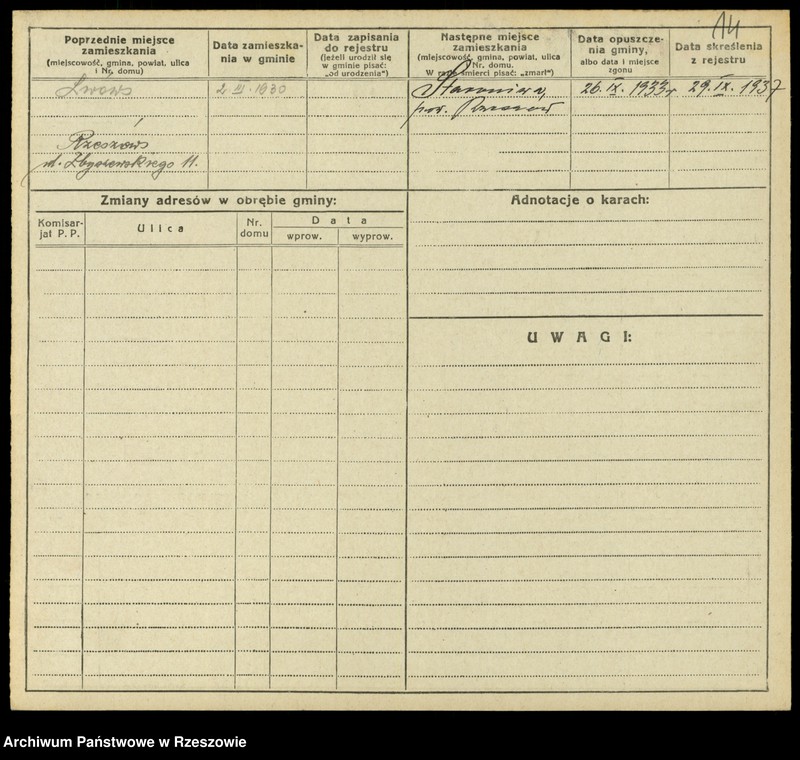 14
Poprzednie miejsce
zamieszkania
(miejscowość, gmina, powiat, ulica
i Nr. domu)
Data zamieszka-
nia w gminie
Data zapisania
do rejestru
(jeżeli urodził się
w gminie pisać:
„od urodzenia")
Następne miejsce
zamieszkania
(miejscowość, gmina, powiat, ulica
Nr. domu.
W razie śmierci pisać: „zmarł")
Data opuszcze-
nia gminy,
albo data i miejsce
zgonu
Data skreślenia
z rejestru
Lwów
1930
Staroniwa,
pow. Rzeszów
26. IX. 1933 r
29. IX. 1937
Rzeszów
ul. Zbyszewskiego 11.
Zmiany adresów w obrębie gminy:
Komisar-
jat P. P.
Ulica
Nr.
domu
Data
wprow.
wyprow.
Adnotacje o karach:
UWAGI:
Archiwum Państwowe w Rzeszowie